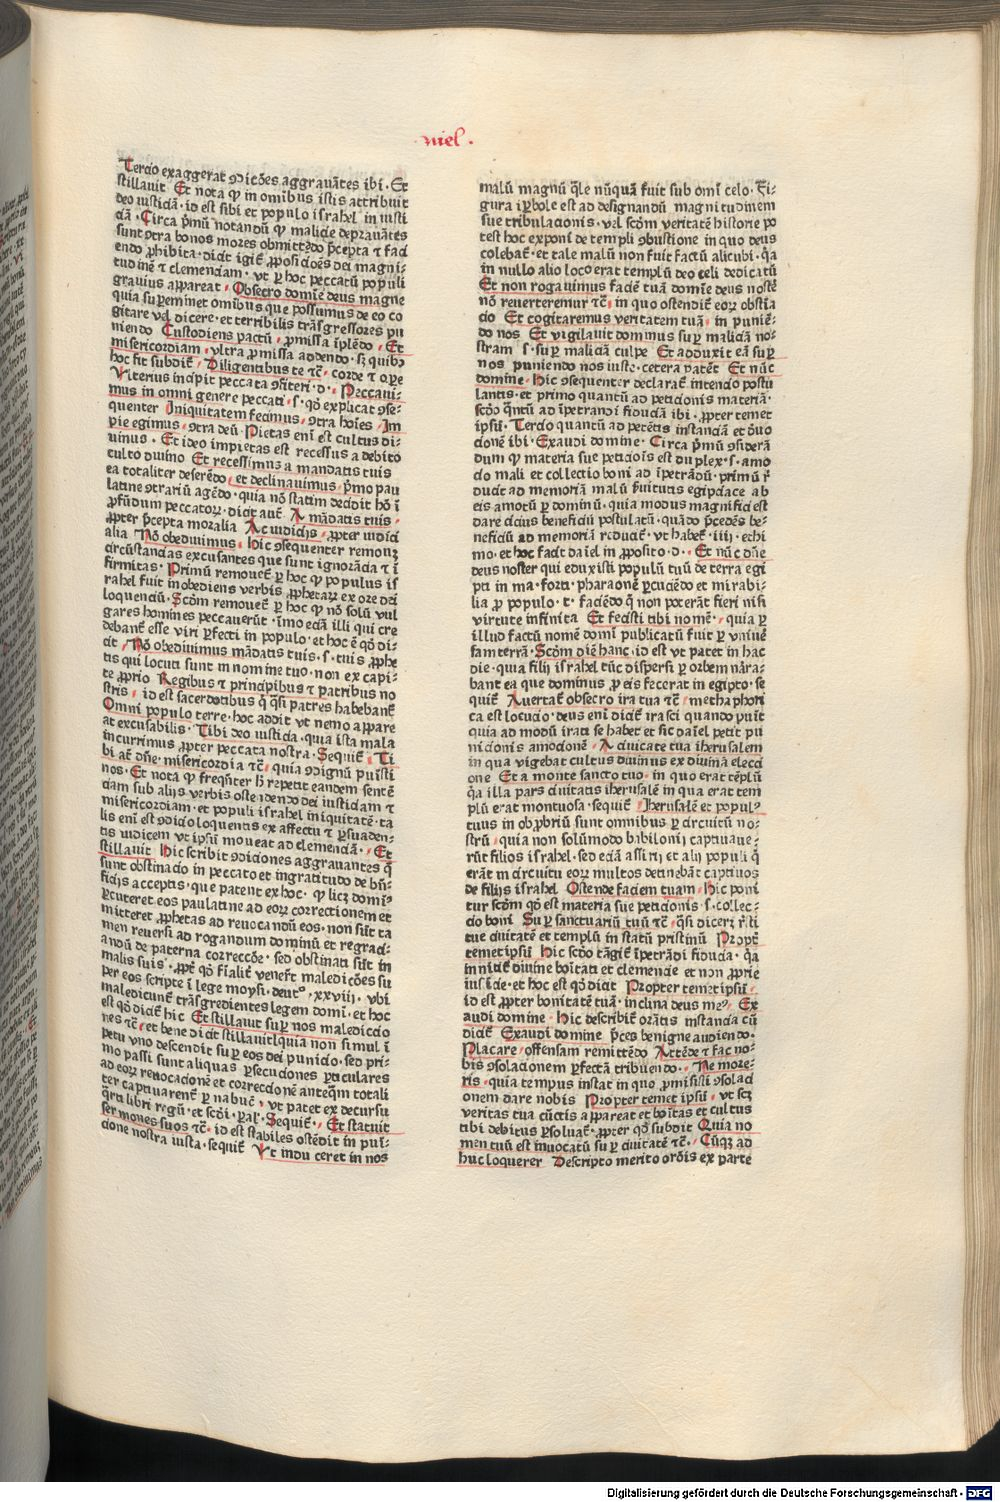 ·niel·
Tercio exaggerat ꝯdicōes aggrauātes ibi· Et
stillauit Et nota ꝙ in omibus istis attribuit
deo iusticiā· id est sibi et populo israhel in iusti
ciā· Circa p̄mū notandū ꝙ malicie deprauātes
sunt ꝯtra bonos mores obmittēdo p̄cepta ⁊ faci
endo ꝓhibita· dicit igit̄ ꝓposicōes dei magni⸗
tudinē ⁊ clemenciam· vt ꝑ hoc peccatū populi
grauius appareat· Obsecro domīe deus magne
quia suꝑeminet omibus que possumus de eo co
gitare vel dicere· et terribilis trāsgressores pu
niendo Custodiens pactū· ꝓmissa īplēdo· Et
misericordiam· vltra ꝓmissa addendo· sꝫ quibꝫ
hoc fit subdit̄· Diligentibus te ⁊c̄· corde ⁊ oꝑe
Vlterius incipit peccata ꝯfiteri· d· Peccaui⸗
mus in omni genere peccati· s· qd̄ explicat ꝯse⸗
quenter Iniquitatem fecimus· ꝯtra hoīes· Im
pie egimus· ꝯtra deū· Pietas enī est cultus di⸗
uinus· Et ideo impietas est recessus a debito
cultu diuino Et recessimus a mandatis tuis
ea totaliter deserēdo· et declinauimus· p̄mo pau
latine ꝯtrariū agēdo· quia nō statim decidit hō ī
ꝓfūdum peccatorꝝ· dicit aut̄· A mādatis tuis·
ꝓpter p̄cepta moralia Ac iudicijs· ꝓpter iudici
alia Nō obediuimus· Hic ꝯsequenter remouꝫ
circūstancias excusantes que sunt ignorācia ⁊ ī
firmitas· Primū remouet̄ ꝑ hoc ꝙ populus is
rahel fuit inobediens verbis ꝓphetarꝝ ex ore dei
loquenciū· Scdm̄ remouet̄ ꝑ hoc ꝙ nō solū vul
gares homines peccauerūt· īmo eciā illi qui cre
debant̄ esse viri ꝑfecti in populo· et hoc ē qd̄ di⸗
cit· Nō obediuimus mādatis tuis· s· tuis ꝓphe
tis qui locuti sunt in nomine tuo· non ex capi⸗
te ꝓprio Regibus ⁊ principibus ⁊ patribus no
stris· id est sacerdotibus q̄ q̄si patres habebant̄
Omni populo terre· hoc addit vt nemo appare
at excusabilis· Tibi deo iusticia· quia ista mala
incurrimus ꝓpter peccata nostra· Sequit̄· Ti
bi at̄ dn̄e· misericordia ⁊c̄· quia ꝯdignū puisti
nos· Et nota ꝙ freq̄nter h̄ repetit eandem sentē
ciam sub alijs verbis ostendendo dei iusticiam ⁊
misericordiam· et populi israhel iniquitatē· ta
lis enī est ꝯdicio loquentis ex affectu ⁊ ꝑsuaden⸗
tis iudicem vt ipsū moueat ad clemenciā· Et
stillauit Hic scribit ꝯdiciones aggrauantes q̄
sunt obstinacio in peccato et ingratitudo de bn̄⸗
ficijs acceptis· que patent ex hoc· ꝙ licꝫ domi⁹
ꝑcuteret eos paulatine ad eorꝝ correctionem et
mitteret ꝓphetas ad reuocandū eos· non sūt ta
men reuersi ad rogandum dominū et regraci⸗
andū de paterna correccōe· sed obstinati sūt in
malis suis· ꝓpt̄ qd̄ fīalit̄ venert̄ maledicōes su
per eos scripte ī lege moysi· deut⁰· xxviij· vbi
maledicunt̄ trāsgredientes legem domī· et hoc
est qd̄ dicit̄ hic Et stillauit suꝑ nos maledictio
nes ⁊c̄· et bene dicit stillauit quia non simul ī
petu vno descendit suꝑ eos dei punicio· sed pri⸗
mo passi sunt aliquas ꝑsecuciones ꝑticulares
ad eorꝝ reuocacionē et correccionē anteq̄m totali
ter captiuarent̄ ꝑ nabuc̄· vt patet ex decursu
q̄rti libri regū· et scd̄i· ꝑal̓· Sequit̄· Et statuit
sermones suos ⁊c̄· id est stabiles ostēdit in pu⸗
cione nostra iusta· sequit̄ Vt induceret in nos
malū magnū q̄le nūquā fuit sub omī celo· Fi⸗
gura iꝑbole est ad designandū magnitudinem
sue tribulacionis· vel scdm̄ veritatē historie po
test hoc exponi de templi ꝯbustione in quo deus
colebat̄· et tale malū non fuit factū alicubi· q̄a
in nullo alio loco erat templū deo celi dedicatū
Et non rogauimus faciē tuā domīe deus nostē
nō reuerteremur ⁊c̄· in quo ostendit̄ eorꝝ obstia
cio Et cogitaremus veritatem tuā· in puniē⸗
do nos Et vigilauit dominus suꝑ maliciā no⸗
stram s· suꝑ maliciā culpe Et adduxit eā suꝑ
nos puniendo nos iuste· cetera patēt Et nūc
domine· Hic ꝯsequenter declarat̄ intencio postu
lantis· et primo quantū ad peticionis materiā·
scd̄o q̄ntū ad īpetrandi fiduciā ibi· ꝓpter temet
ipsū· Tercio quantū ad petētis instanciā et d̓uo
cionē ibi· Exaudi domine· Circa p̄mū ꝯsiderā
dum ꝙ materia sue peticiōis est duplex· s· amo
cio mali et collectio boni ad īpetrādū· primū r̄
ducit ad memoriā malū s̄uitutis egipciace ab
eis amotū ꝑ dominū· quia modus magnific̄ est
dare cicius beneficiū postulatū· quādo p̄cedēs be⸗
neficiū ad memoriā reducit̄· vt habet̄· iiij· ethi
mo· et hoc facit daīel in ꝓposito· d· Et nūc dn̄e
deus noster qui eduxisti populū tuū de terra egi
pti in ma· forti· pharaonē ꝑcuciēdo et mirabi⸗
lia ꝓ populo· t· faciēdo q̄ non poterāt fieri nisi
virtute infinita Et fecisti tibi nomē· quia ꝑ
illud factū nomē domī publicatū fuit ꝑ vniuē
sam terrā· Scdm̄ diē hanc· id est vt patet in hac
die· quia filij israhel tūc dispersi ꝑ orbem nāra⸗
bant ea que dominus ꝓ eis fecerat in egipto· se
quit̄ Auertat̄ obsecro ira tua ⁊c̄· methaphori
ca est locucio· deus enī dicit̄ irasci quando puīt
quia ad modū irati se habet et sic daīel petit pu
nicionis amocionē· A ciuitate tua iherusalem
in qua vigebat cultus diuinus ex diuīna elecci
one Et a monte sancto tuo· in quo erat tēplū
q̄a illa pars ciuitatis iherusalē in qua erat tem
plū erat montuosa· sequit̄ Iherusalē et popul⁹
tuus in obprobriū sunt omnibus ꝑ circuitū no⸗
strū· quia non solūmodo babilonij captiuaue⸗
rūt filios israhel· sed eciā assirij et alij populi q̄
erāt in circuitu eorꝝ multos detinebāt captiuos
de filijs israhel Ostende faciem tuam· Hic poni
tur scdm̄ qd̄ est materia sue peticionis· s· collec⸗
cio boni Suꝑ sanctuariū tuū ⁊c̄· q̄si dicerꝫ r̄sti
tue ciuitatē et templū in statū pristinū Propt̄
temetipsū Hic scd̄o tāgit̄ īpetrādi fiducia· q̄a
innitit̄ diuine boītati et clemencie et non ꝓprie
iusticie· et hoc est qd̄ dicit Propter temetipsū·
id est ꝓpter bonitatē tuā· inclina deus me⁹· Ex
audi domine· Hic describit̄ orātis instancia cū
dicit̄ Exaudi domine p̄ces benigne audiendo·
Placare· offensam remittēdo Attēde ⁊ fac no⸗
bis ꝯsolacionem ꝑfectā tribuendo· Ne more⸗
ris· quia tempus instat in quo ꝓmisisti ꝯsolaci
onem dare nobis Propter temet ipsū· vt scꝫ
veritas tua cūctis appareat et boītas et cultus
tibi debitus ꝑsoluat̄· ꝓpter qd̄ subdit Quia no
men tuū est inuocatū suꝑ ciuitatē ⁊c̄· Cūqꝫ ad
huc loquerer Descripto merito orōīs ex parte
Digitalisierung gefördert durch die Deutsche Forschungsgemeinschaft · DFG